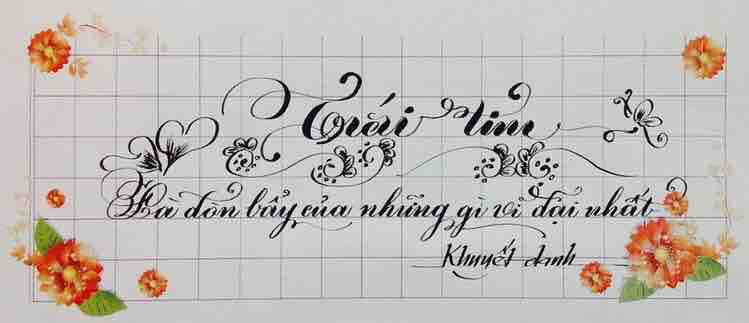 Trái tim
Là đòn bẩy của những gì vĩ đại nhất
Khuyết danh